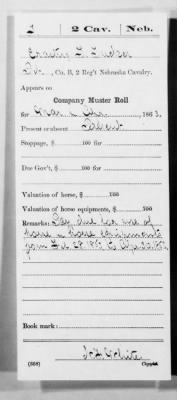 2 Cav. Neb.
Pvt., Co. B, 2 Reg't Nebraska Cavalry.
Appears on
Company Muster Roll
for Mar & Apr, 1863.
Present or absent Present
Stoppage, $ 100 for
Due Gov't, $ 100 for
Valuation of horse, $ 100
Valuation of horse equipments, $ 100
Remarks: Pay due for use of
horse & horse equipments
from
Book mark:
(358) Copyist.